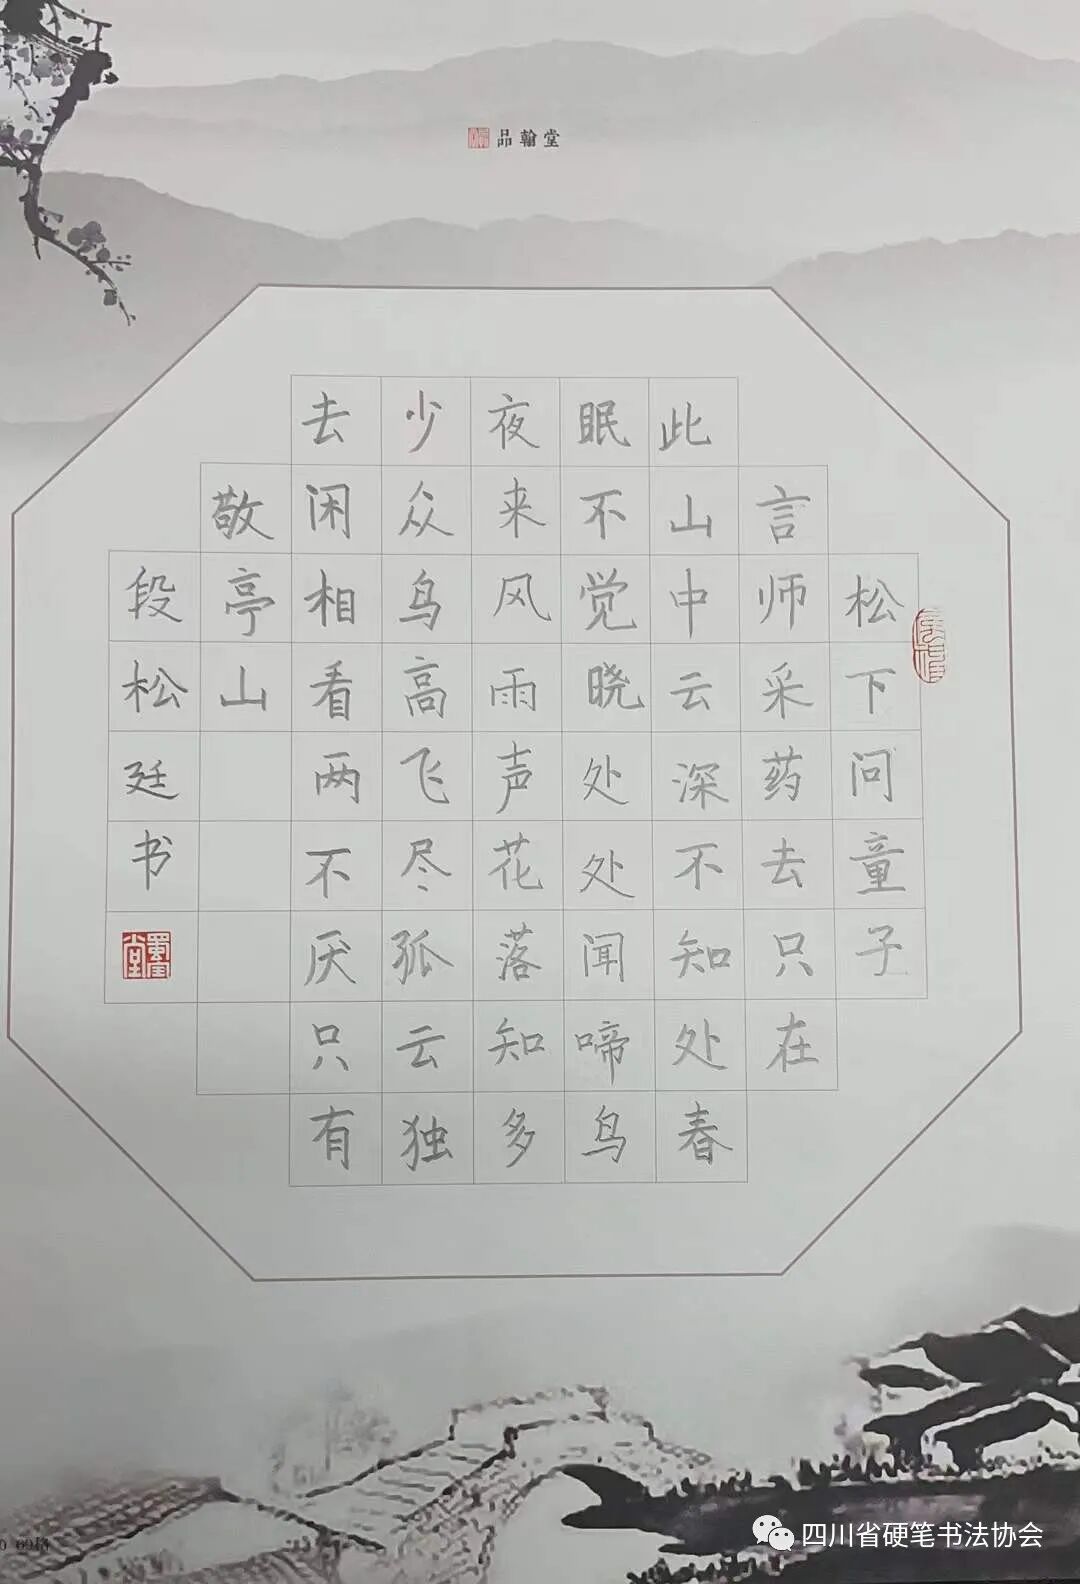 品翰堂
松下问童子
言师采药去只在
此山中云深不知处春
眠不觉晓处处闻啼鸟
夜来风雨声花落知多
少众鸟高飞尽孤云独
去闲相看两不厌只有
敬亭山
段松廷书
四川省硬笔书法协会